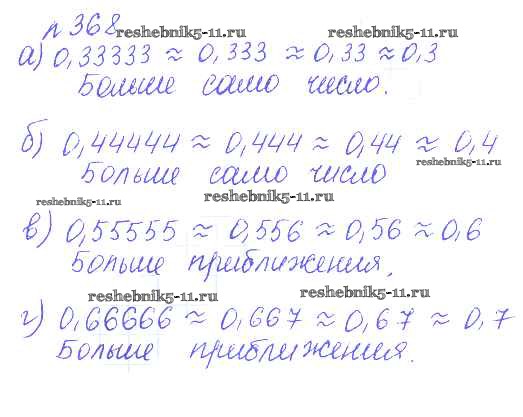 п 368 reshebnik5-11.ru reshebnik5-11.ru
а) 0,33333 ≈ 0,333 ≈ 0,33 ≈ 0,3
Больше само число.
б) 0,44444 ≈ 0,444 ≈ 0,44 ≈ 0,4
reshebnik5-11.ru
Больше само число
reshebnik5-11.ru reshebnik5-11.ru
в) 0,55555 ≈ 0,556 ≈ 0,56 ≈ 0,6
Больше приближения.
reshebnik5-11.ru reshebnik5-11.ru
г) 0,66666 ≈ 0,667 ≈ 0,67 ≈ 0,7
Больше приближения.